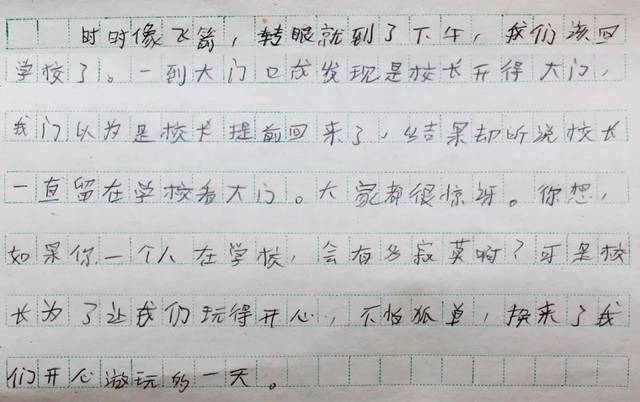 时时像飞箭，转眼就到了下午，我们该回
学校了。一到大门口我发现是校长开得大门，
我门以为是校长提前回来了，结果却听说校长
一直留在学校看大门。大家都很惊讶。你想，
如果你一个人在学校，会有多寂莫啊？可是校
长为了让我们玩得开心，不怕狐单，换来了我
们开心游玩的一天。